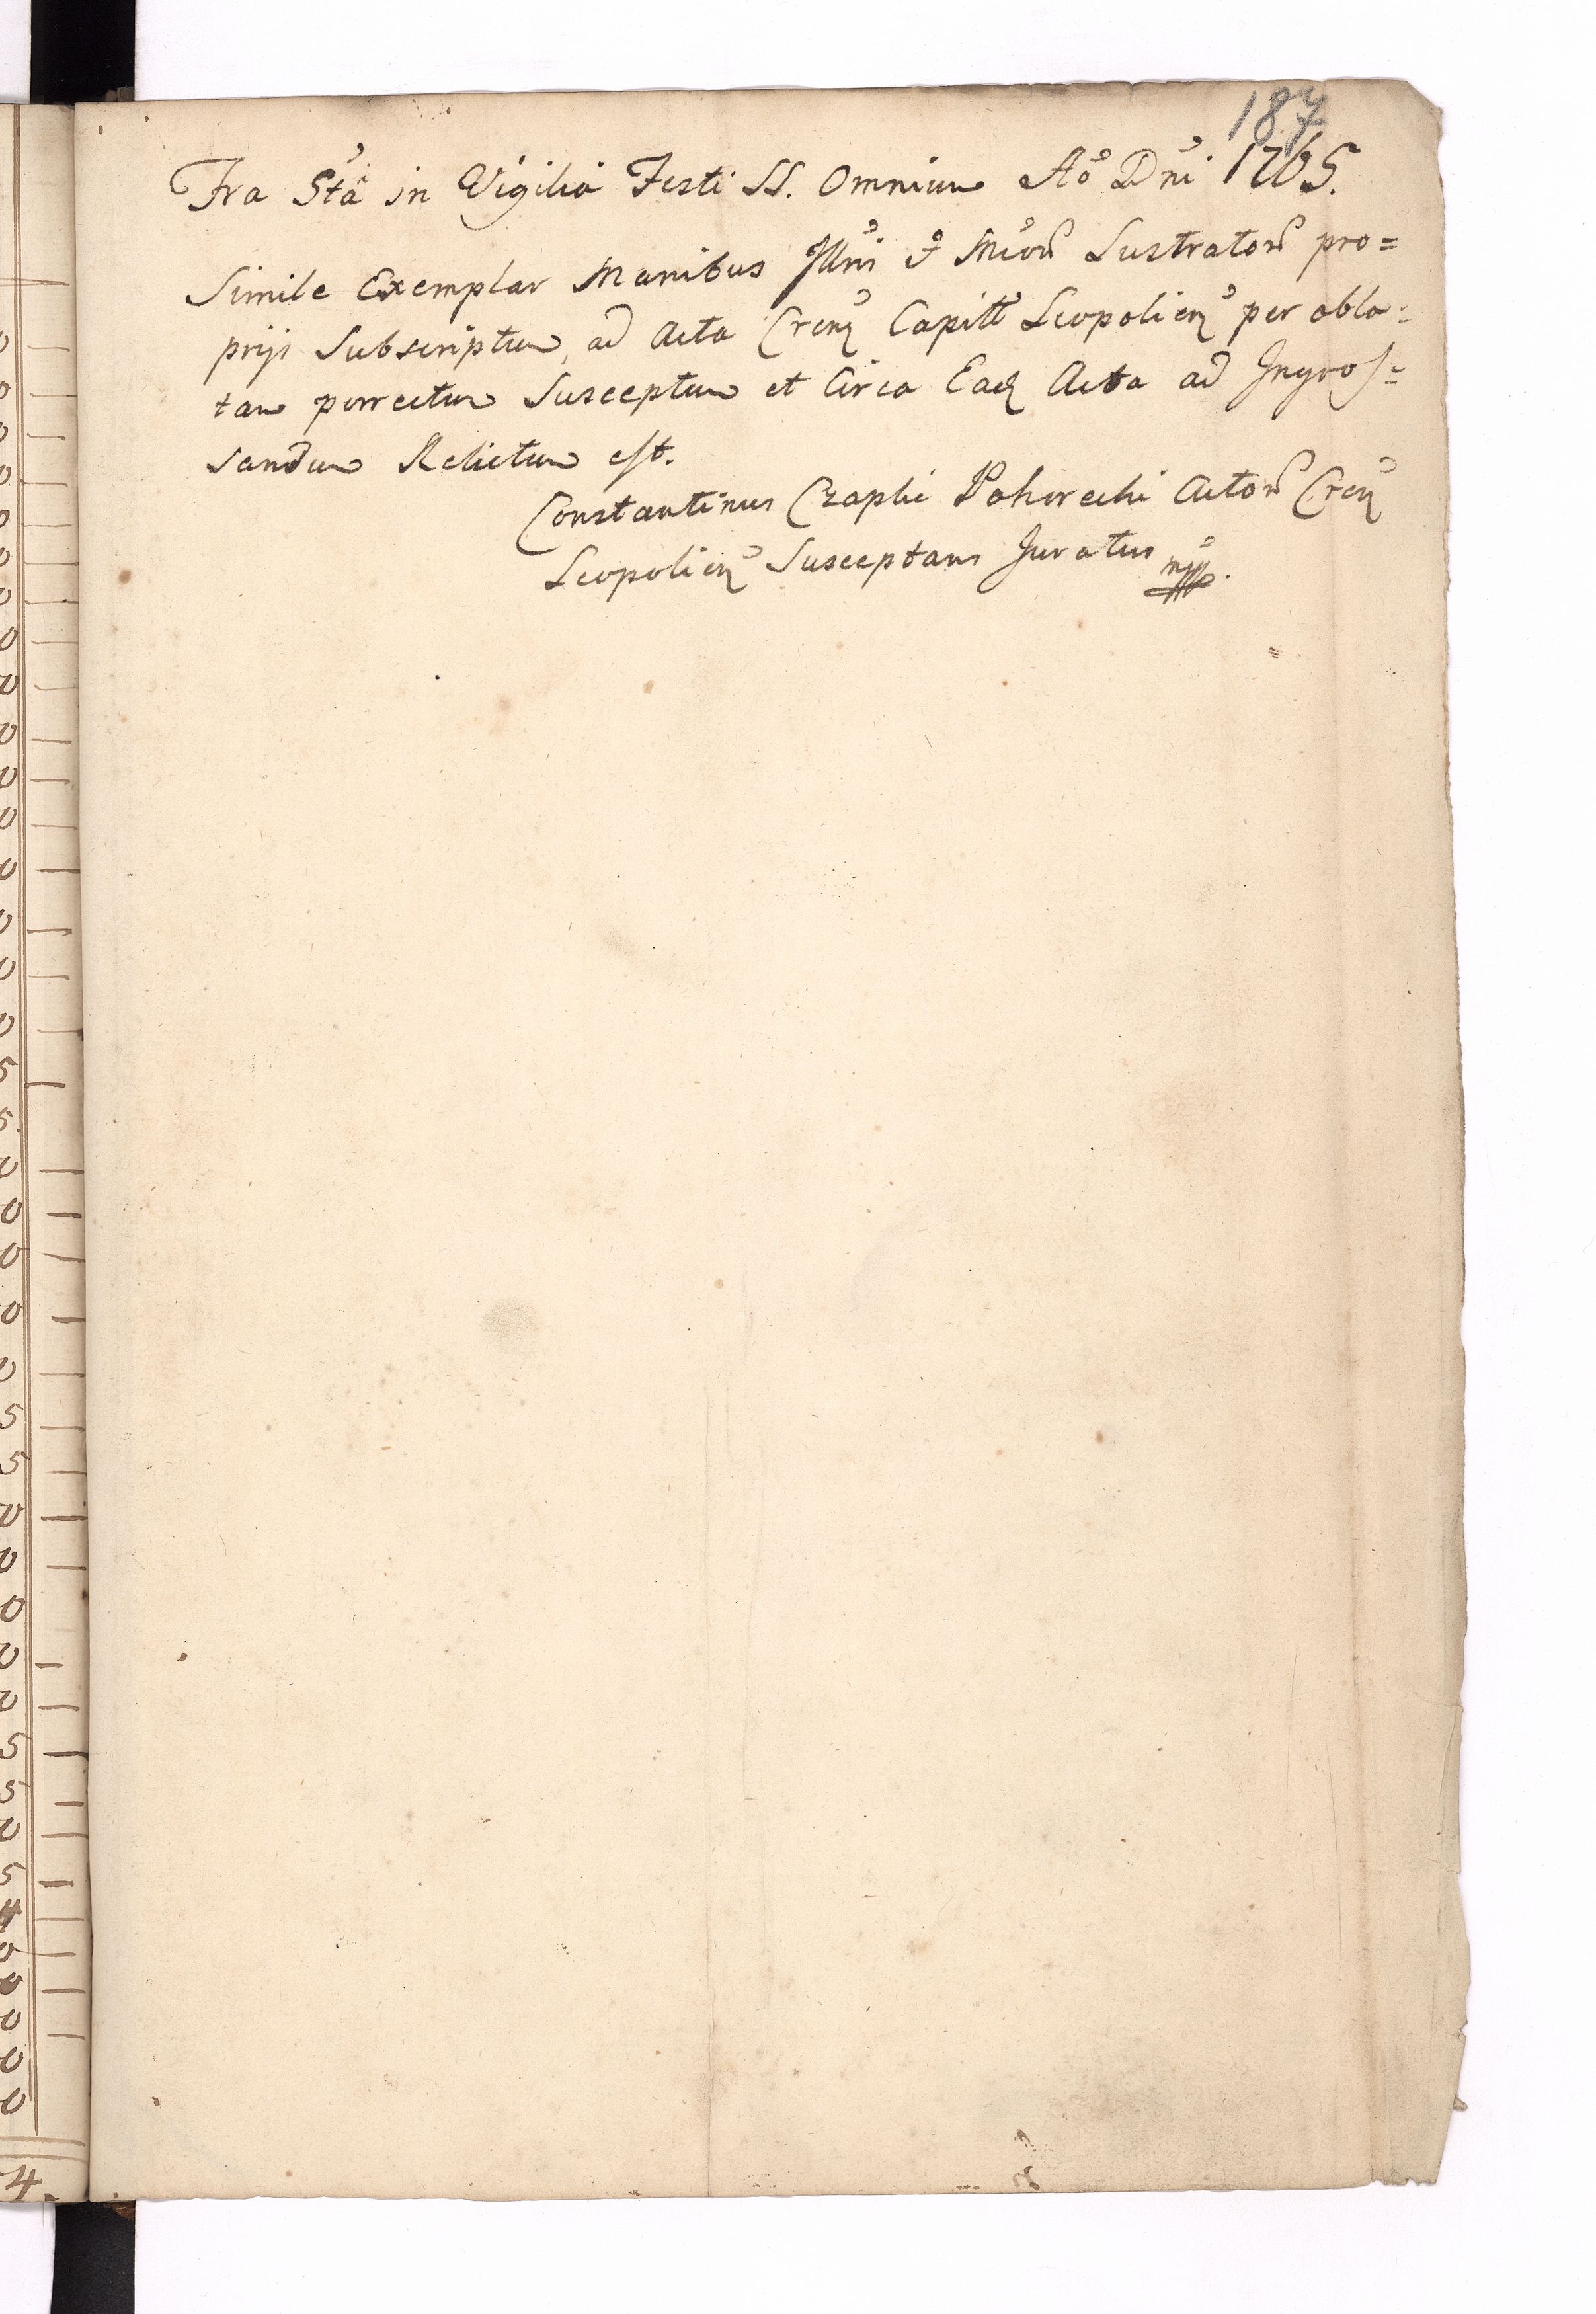 187
Fra Sta in Vigilia Festi SS. Omnium Ao Dni 1765.
Simile Exemplar Manibus Illrii & Mcor Lustrator pro=
prijs Subscriptum, ad Acta Cren Capitt Leopolien per obla=
tam porrectum Susceptum et Circa Eadq Acta ad Ingros=
sandum Relictum est.
Constantinus Czaplic Pohorecki Actor Cren
Leopolien Susceptans Juratus mpp.